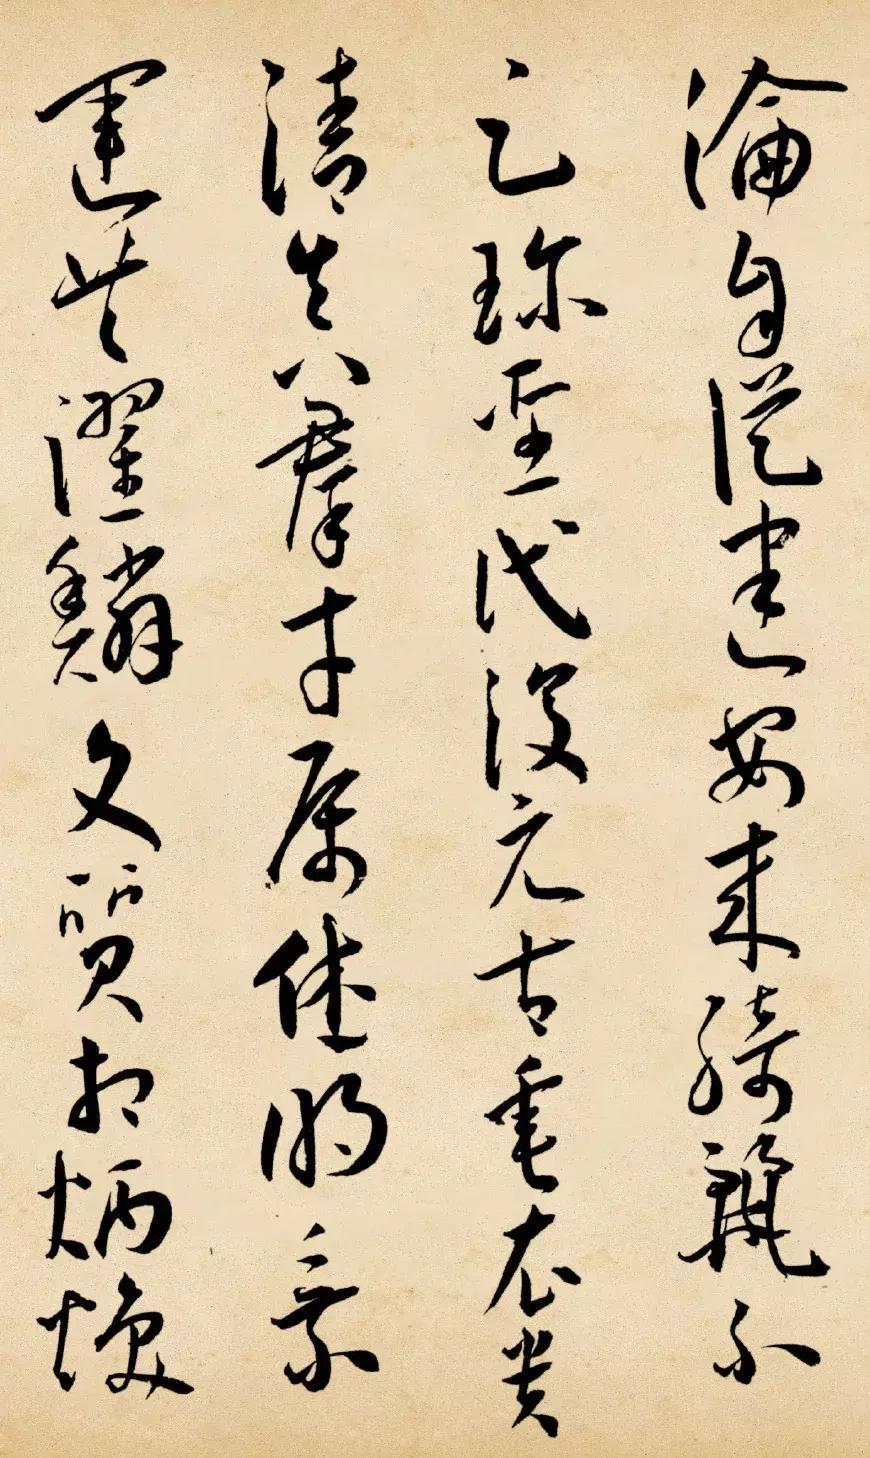 淪自從建安来綺麗不
足珎聖代復元古垂衣貴
清真羣才属休明乘
運共躍鱗文質相炳煥